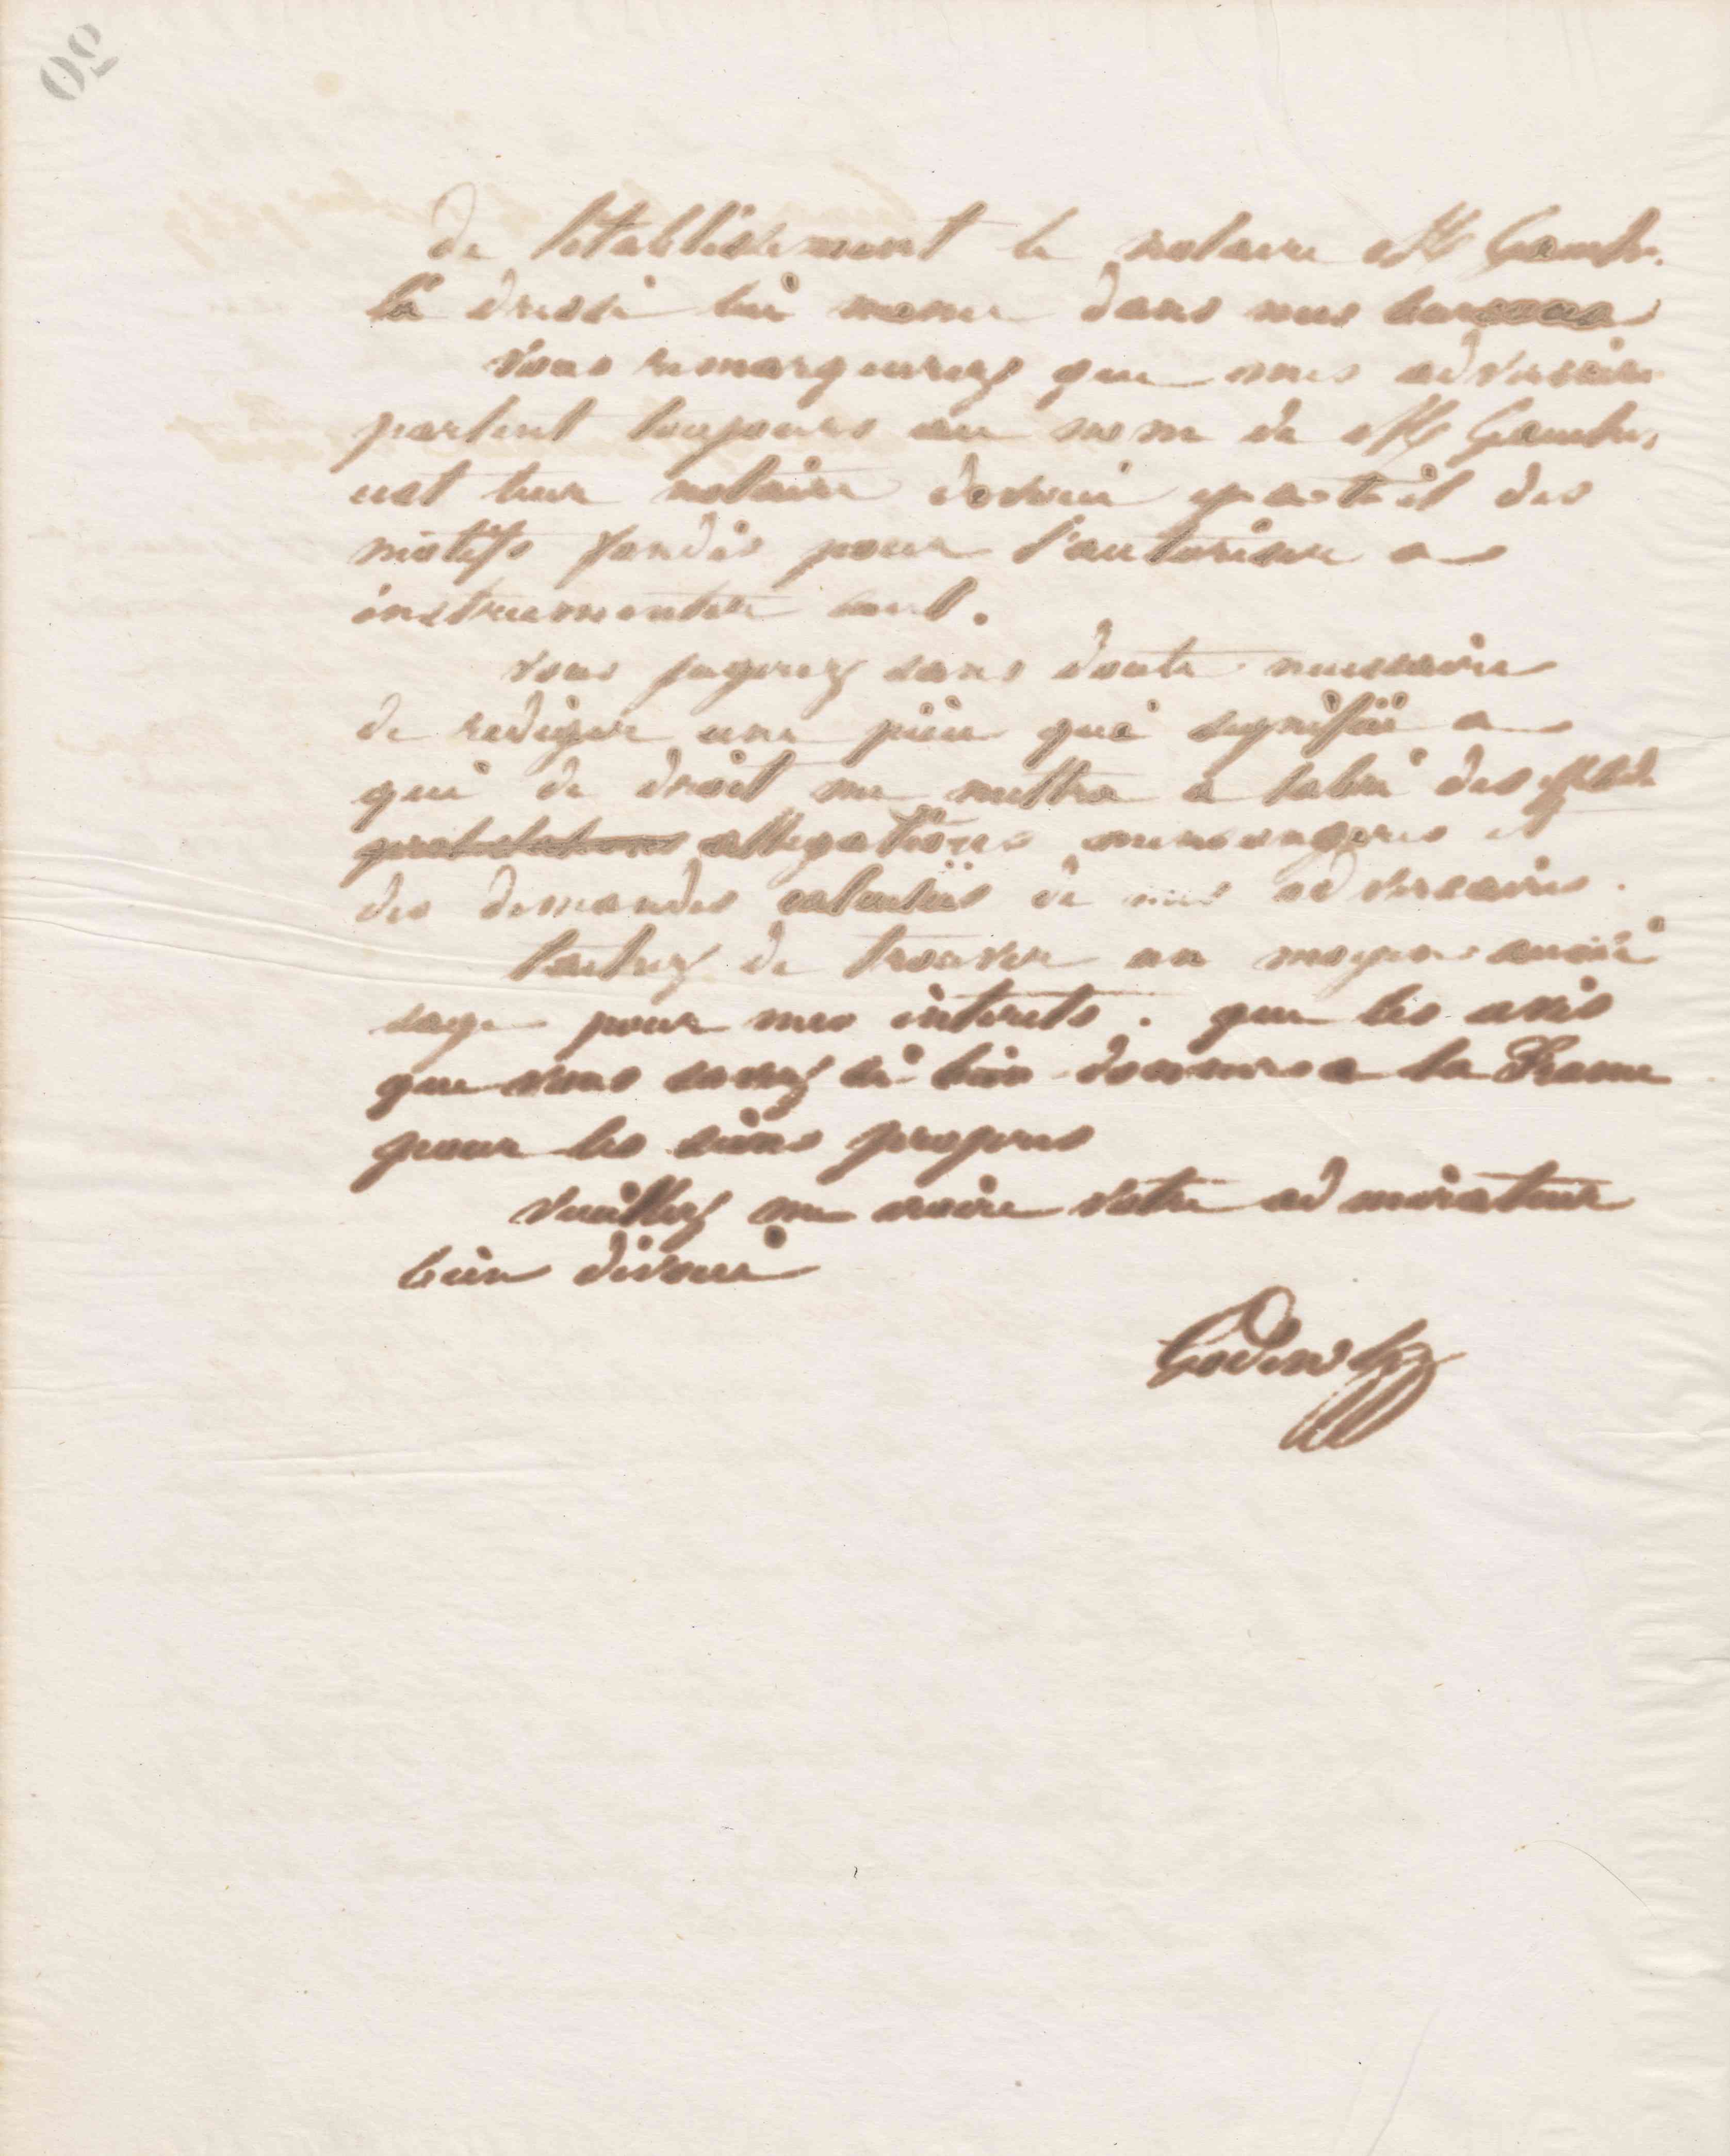 50
de l'établissement le notaire Mr Gaudu
l'a dressé lui meme dans mes bureaux
Vous remarquerez que mes adversaires
parlent toujours au nom de Mr Gaudu,
est leur notaire dévoué y a-t-il des
motifs fondés pour l'autoriser a
instrumenter seul.
Vous jugerez sans doute necessaire
de rediger une pièce qui signifiée a
qui de droit me mettra a labri des
allegations mensongeres et
des demandes calculées de mes adversaires.
tachez de trouver un moyen aussi
sage pour mes interets. que les avis
que vous savez si bien donner a la France
pour les siens propres
Veuillez me croire votre admirateur
bien dévoué
Godin